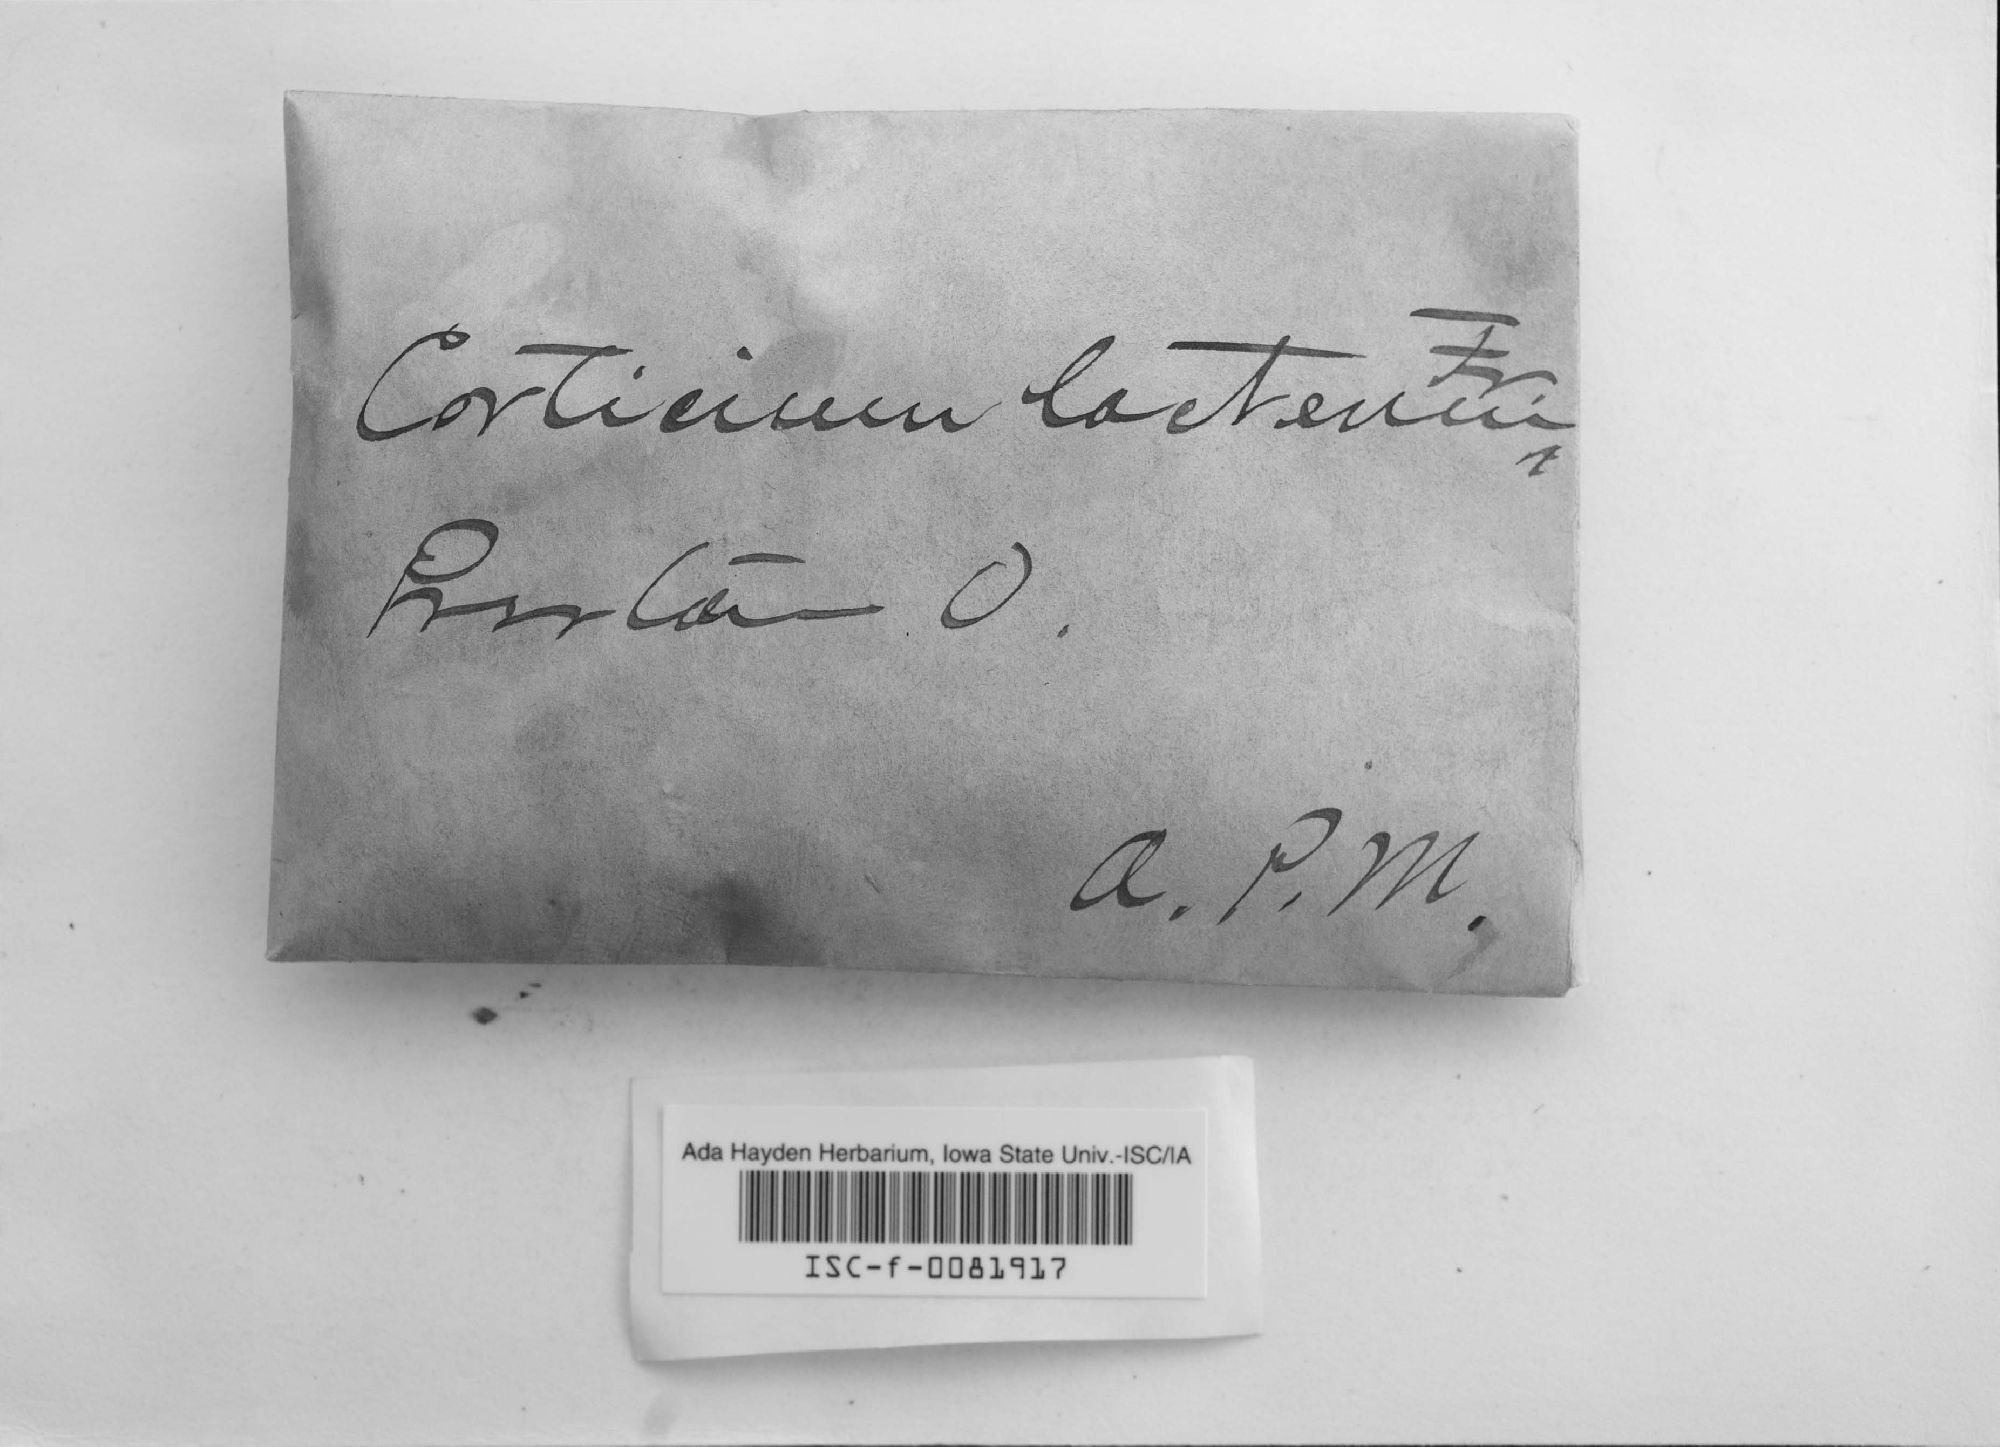 Corticium lacteum Fr.
Preston O.
A. P. M.
Ada Hayden Herbarium, Iowa State Univ.-ISC/IA
ISC-f-0081917